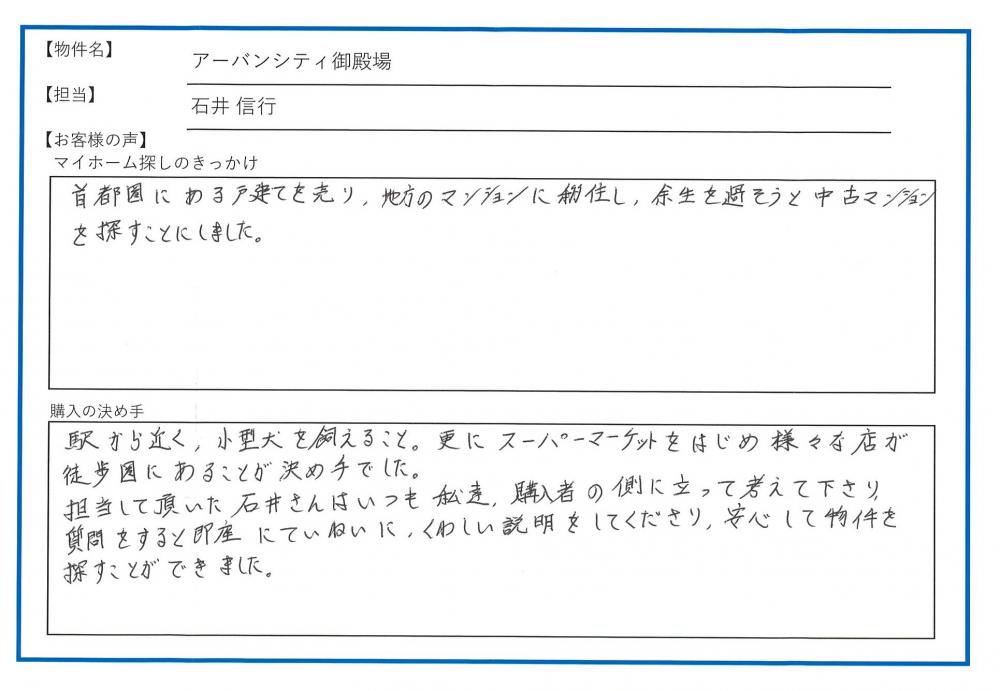 【物件名】
アーバンシティ御殿場
【担当】
石井 信行
【お客様の声】
マイホーム探しのきっかけ
首都圏にある戸建てを売り、地方のマンションに移住し、余生を過そうと中古マンション
を探すことにしました。
購入の決め手
駅から近く、小型犬を飼えること。更にスーパーマーケットをはじめ様々な店が
徒歩圏にあることが決め手でした。
担当して頂いた石井さんはいつも私達、購入者の側に立って考えて下さり
質問をすると即座にていねいに、くわしい説明をしてくださり、安心して物件を
探すことができました。